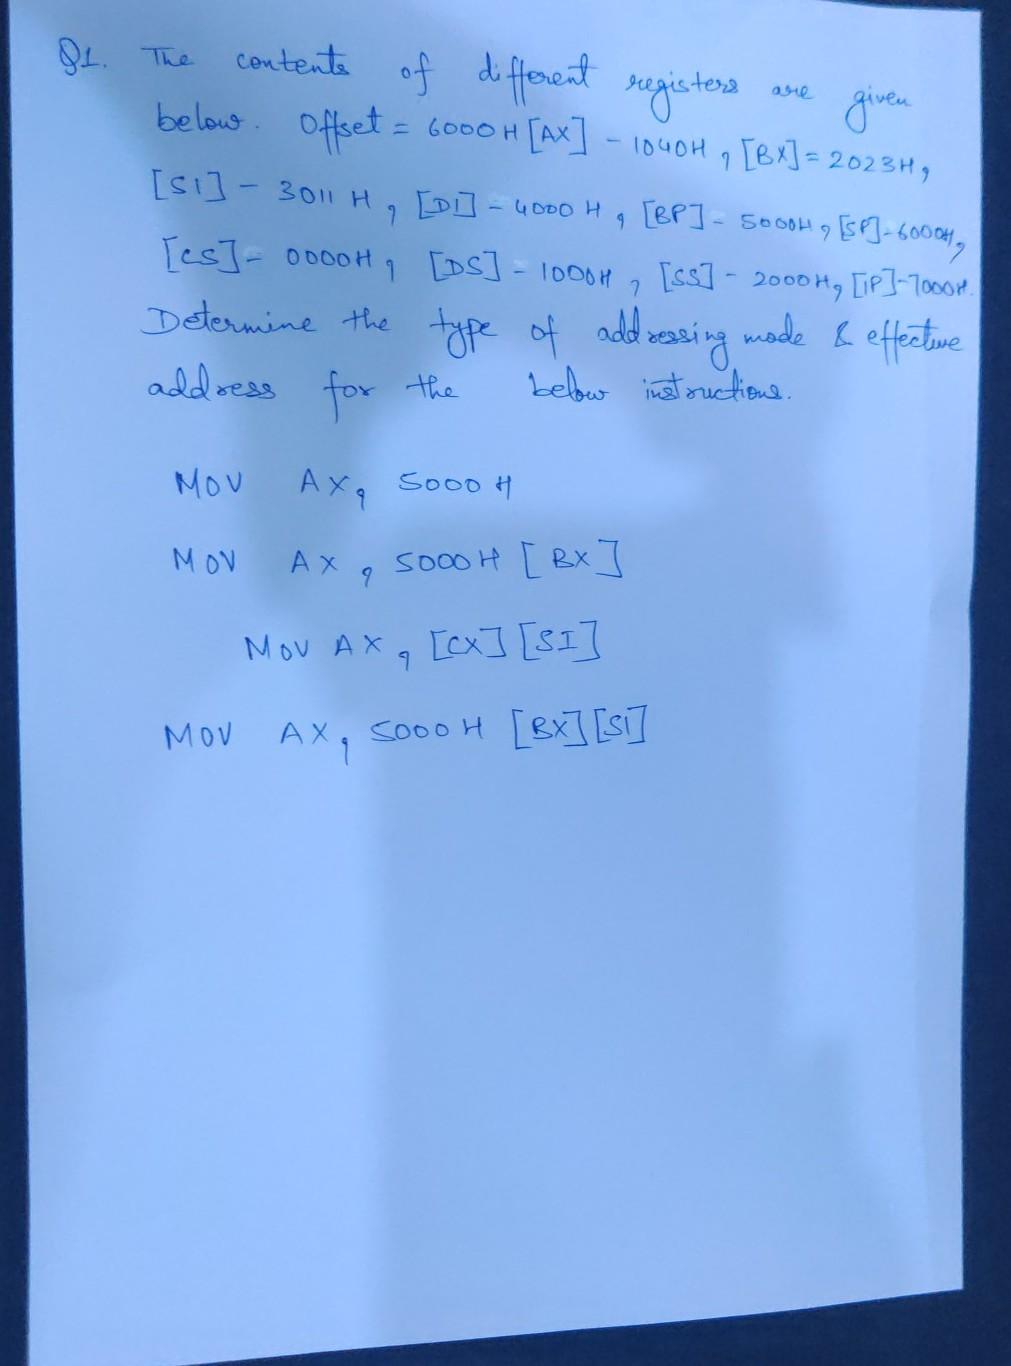 Q1. The contents of different registers are given
below. Offset = 6000H [AX] - 1040H, [BX] = 2023H,
[SI] - 3011 H, [DI] - 4000 H, [BP] - 5000H, [SP]-6000H,
[CS] - 0000H, [DS] - 1000H, [SS] - 2000H, [IP]-7000H.
Determine the type of addressing mode & effective
address for the below instructions.
MOV AX, 5000 H
MOV AX, 5000H [BX]
MOV AX, [CX] [SI]
MOV AX, 5000H [BX][SI]